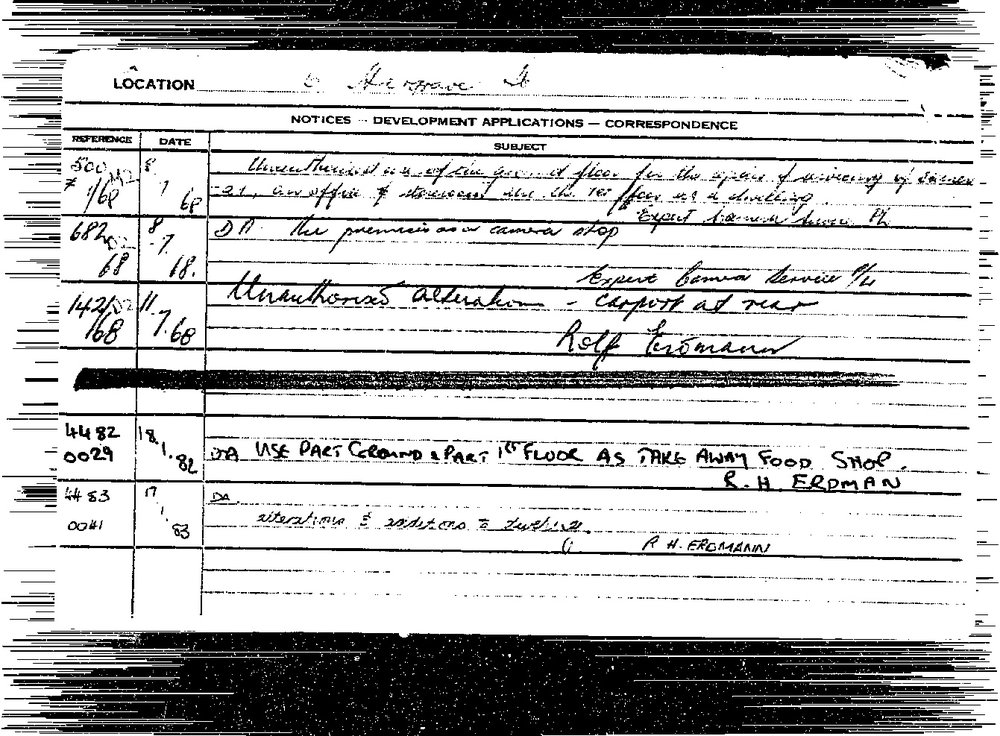 LOCATION Hargrave St
NOTICES — DEVELOPMENT APPLICATIONS — CORRESPONDENCE
REFERENCE DATE SUBJECT
500 8 Unauthorised use of the ground floor for the repair & servicing of
1/68 7 68 as an office & storeroom and the 1st floor as a dwelling
Expert Camera Service P/L
682 8 DA. the premises as a camera shop
68 7. 68.
Expert Camera Service P/L
142/ 11 Unauthorised alterations - carport at rear
/68 7.68
Rolf Erdmann
4482 18. DA USE PART GROUND & PART 1ST FLOOR AS TAKE AWAY FOOD SHOP.
0029 1. 82
R. H ERDMAN
4483 17 DA.
0041 1 83 alterations & additions to dwelling
R H. ERDMANN